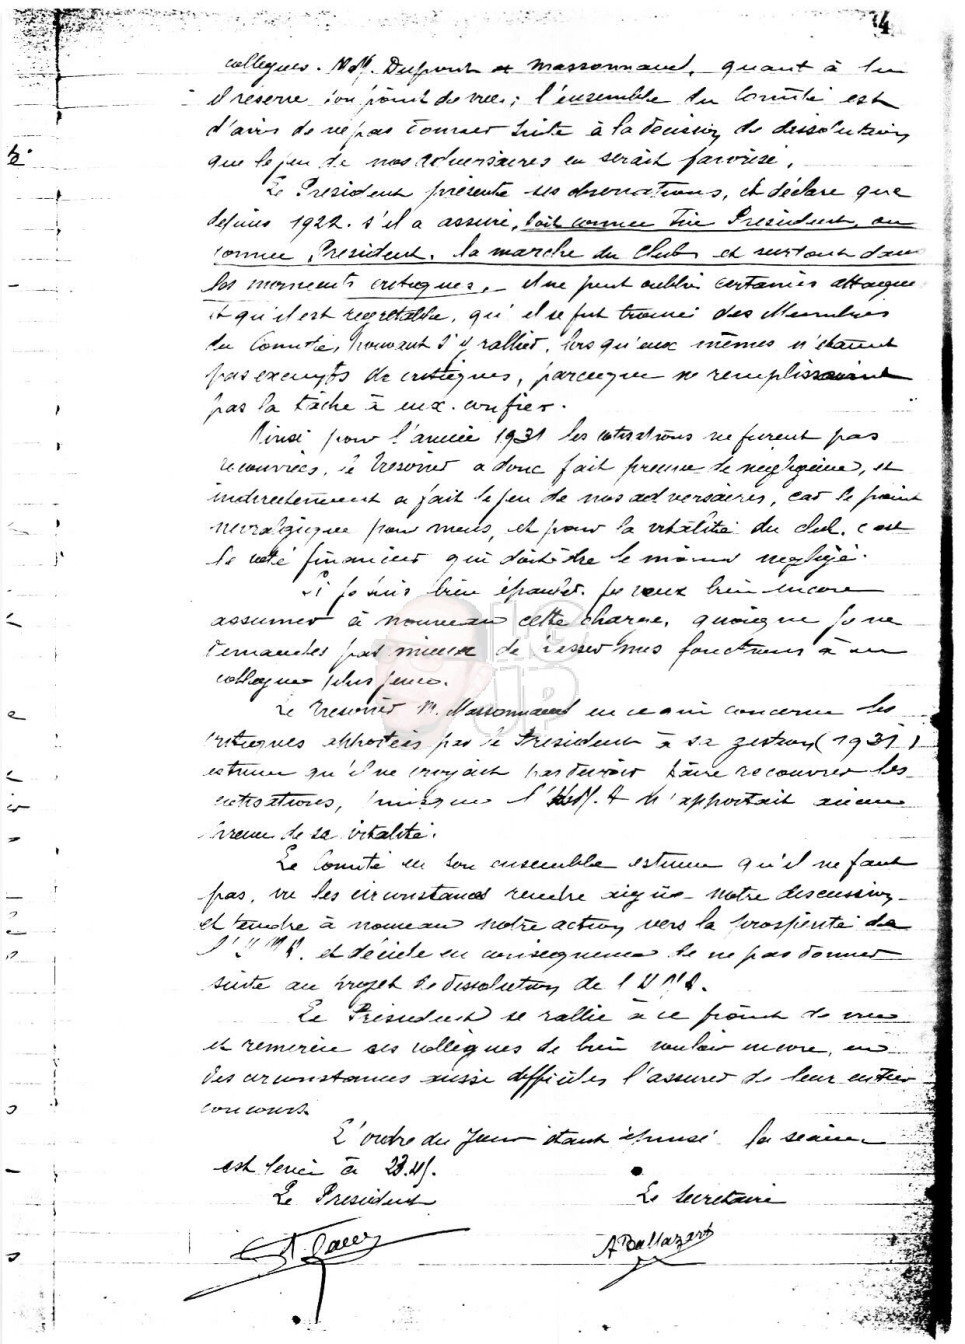 4
collègues. MM. Dupont et Massonnaud, quant à lui
il réserve son point de vue; l'ensemble du Comité est
d'avis de ne pas donner suite à la décision de dissolution
que le jeu de nos adversaires en serait favorisé.
Le President présente ses observations, et déclare que
depuis 1922. s'il a assuré, soit comme Vice President, ou
comme President. la marche du Club et surtout dans
les moments critiques, - il ne peut oublier certaines attaques
et qu'il est regretable, qu'il se fut trouvé des Membres
du Comité, pouvant s'y rallier, lors qu'eux mêmes n'étaient
pas exempts de critiques, parceque ne remplissaient
pas la tâche à eux. confier.
Ainsi pour l'année 1931 les cotisations ne furent pas
recouvrées, le Tresorier a donc fait preuve de négligence, et
indirectement a fait le jeu de nos adversaires, car le point
névralgique pour nous, et pour la vitalité du club. c'est
le coté financier qui doit être le moins negligé.
Si je suis bien épauler. je veux bien encore
assumer à nouveau cette charge, quoique je ne
demandes pas mieux de cesser mes fonctions à un
collegue plus jeune.
Le Tresorier M. Massonnaud en ce qui concerne les
critiques apportées par le President à sa gestion (1931)
estime qu'il ne croyait pas devoir faire recouvrer les
cotisations, puisque l' n'apportait aucune
preuve de sa vitalité.
Le Comité en son ensemble estime qu'il ne faut
pas, vu les circonstances rendre aigüe notre discussion
et tendre à nouveau notre action vers la prospérité de
l' et décide en conséquence de ne pas donner
suite au projet de dissolution de l'
Le President se rallie à ce point de vue
et remercie ses collègues de bien vouloir encore, en
des circonstances aussi difficiles l'assurer de leur entier
concours.
L'ordre du Jour étant épuisé la séance
est levée à 23.45.
Le President Le Secretaire
A Ballazart
LG
JP